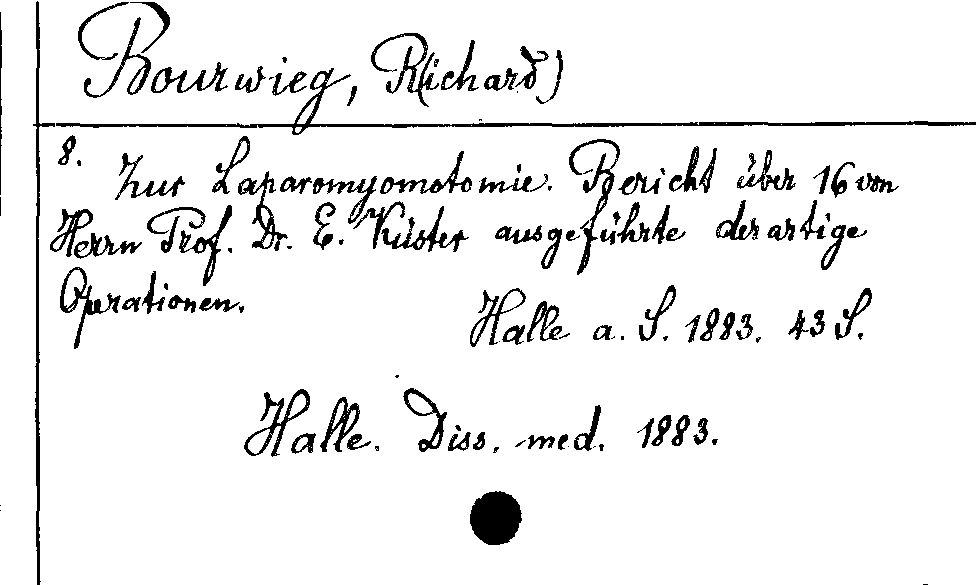 Bourwieg, R(ichard)
8. Zur Laparomyomotomie. Bericht über 16 von
Herrn Prof. Dr. E. Küster ausgeführte derartige
Operationen.
Halle a. S. 1883. 43 S.
Halle. Diss. med. 1883.